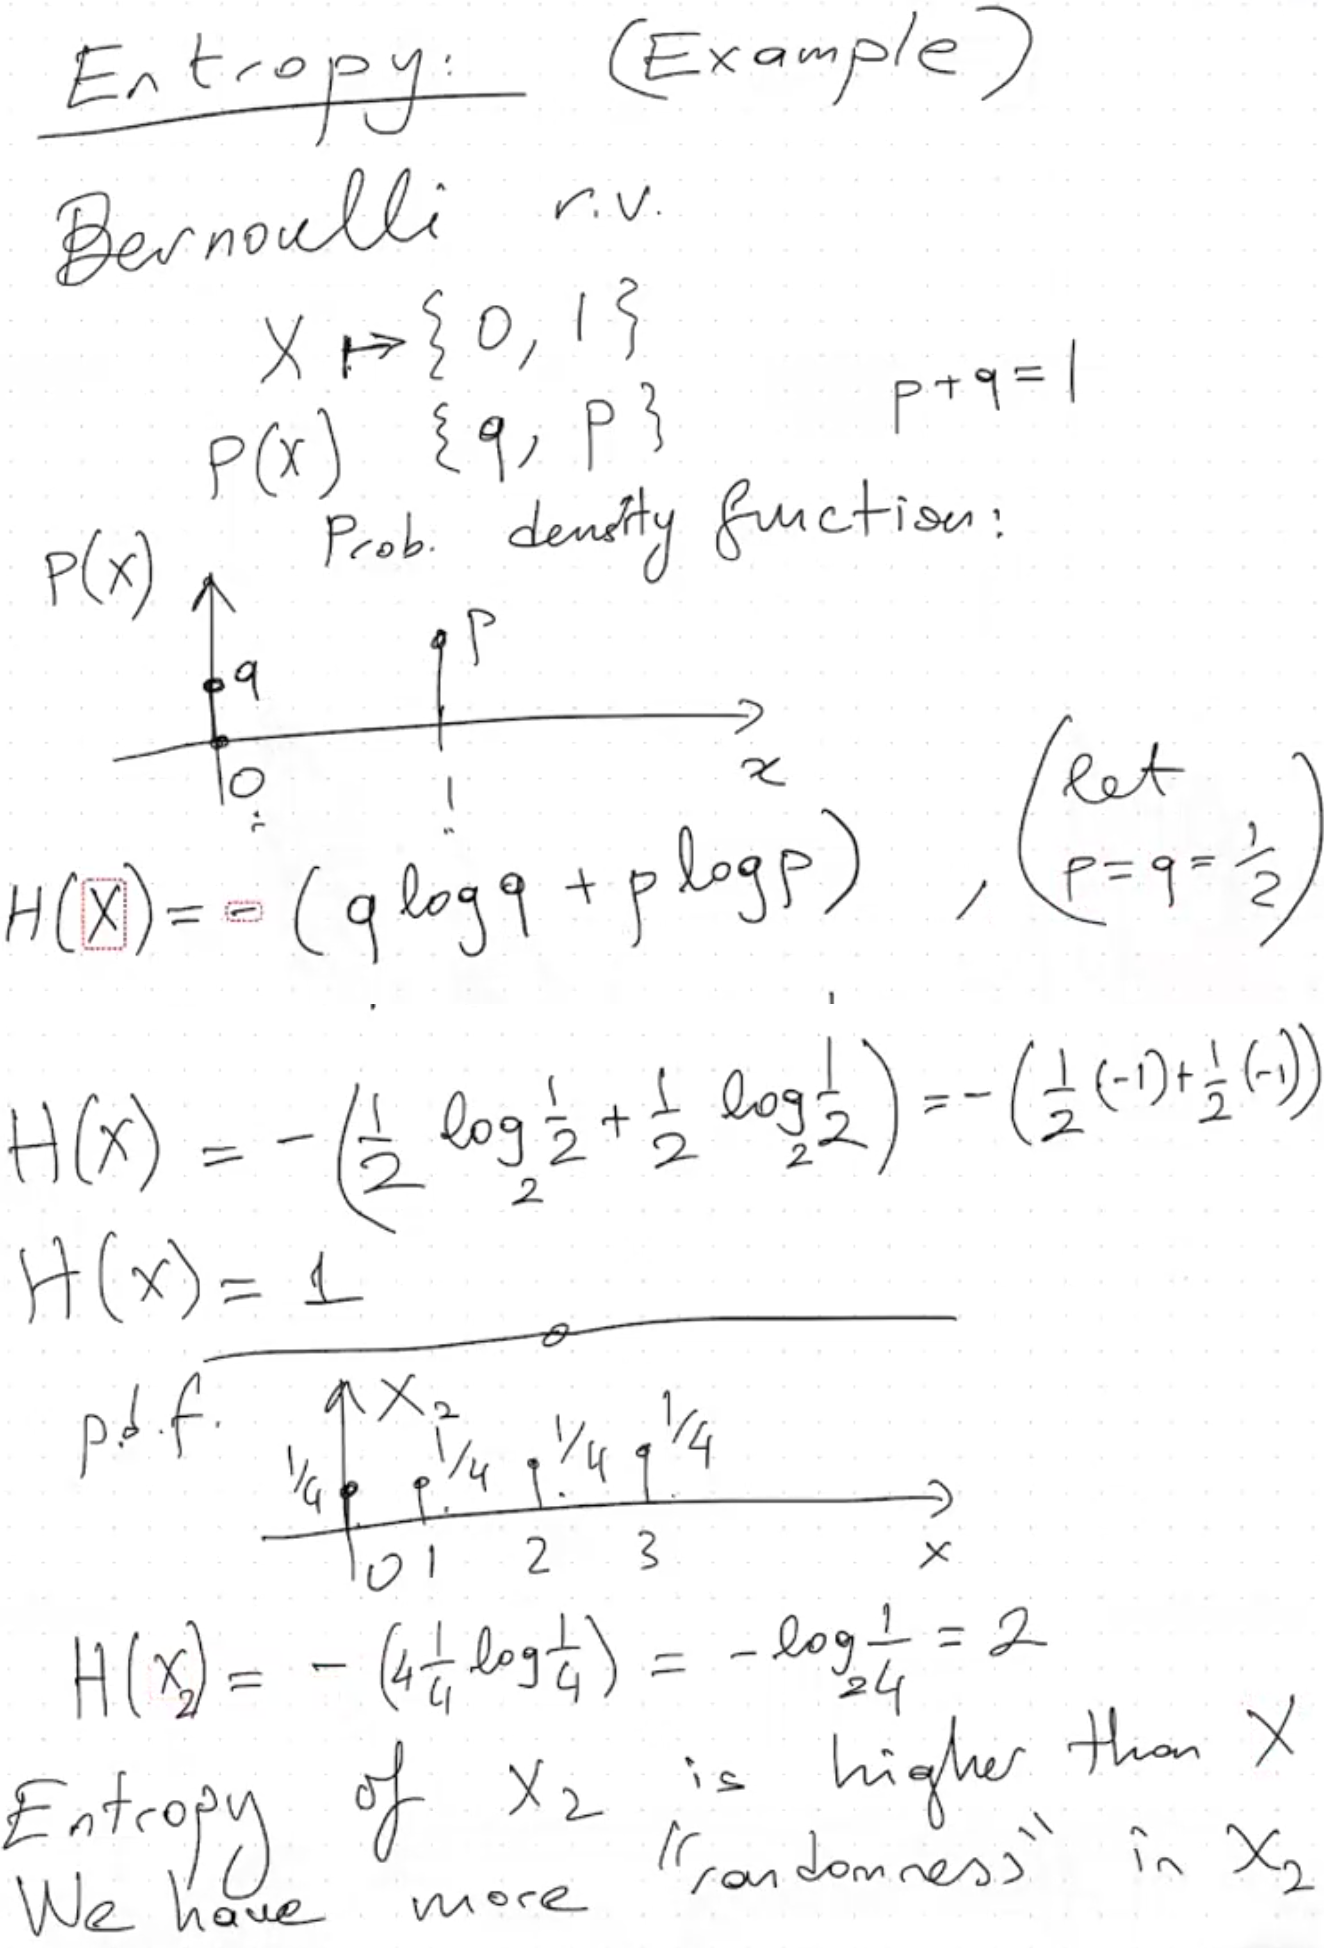 Entropy: (Example)
Bernoulli r.v.
X ↦ {0, 1}
P(x) {q, p} p+q=1
Prob. density function:
P(x)
p
q
0 1 x
(let p=q=1/2)
H(X) = - (q log q + p log p) ,
H(X) = - (1/2 log₂ 1/2 + 1/2 log₂ 1/2) = - (1/2 (-1) + 1/2 (-1))
H(X) = 1
p.d.f. X₂
1/4 1/4 1/4 1/4
0 1 2 3 x
H(X₂) = - (4 1/4 log 1/4) = - log₂ 1/4 = 2
Entropy of X₂ is higher than X
We have more "randomness" in X₂